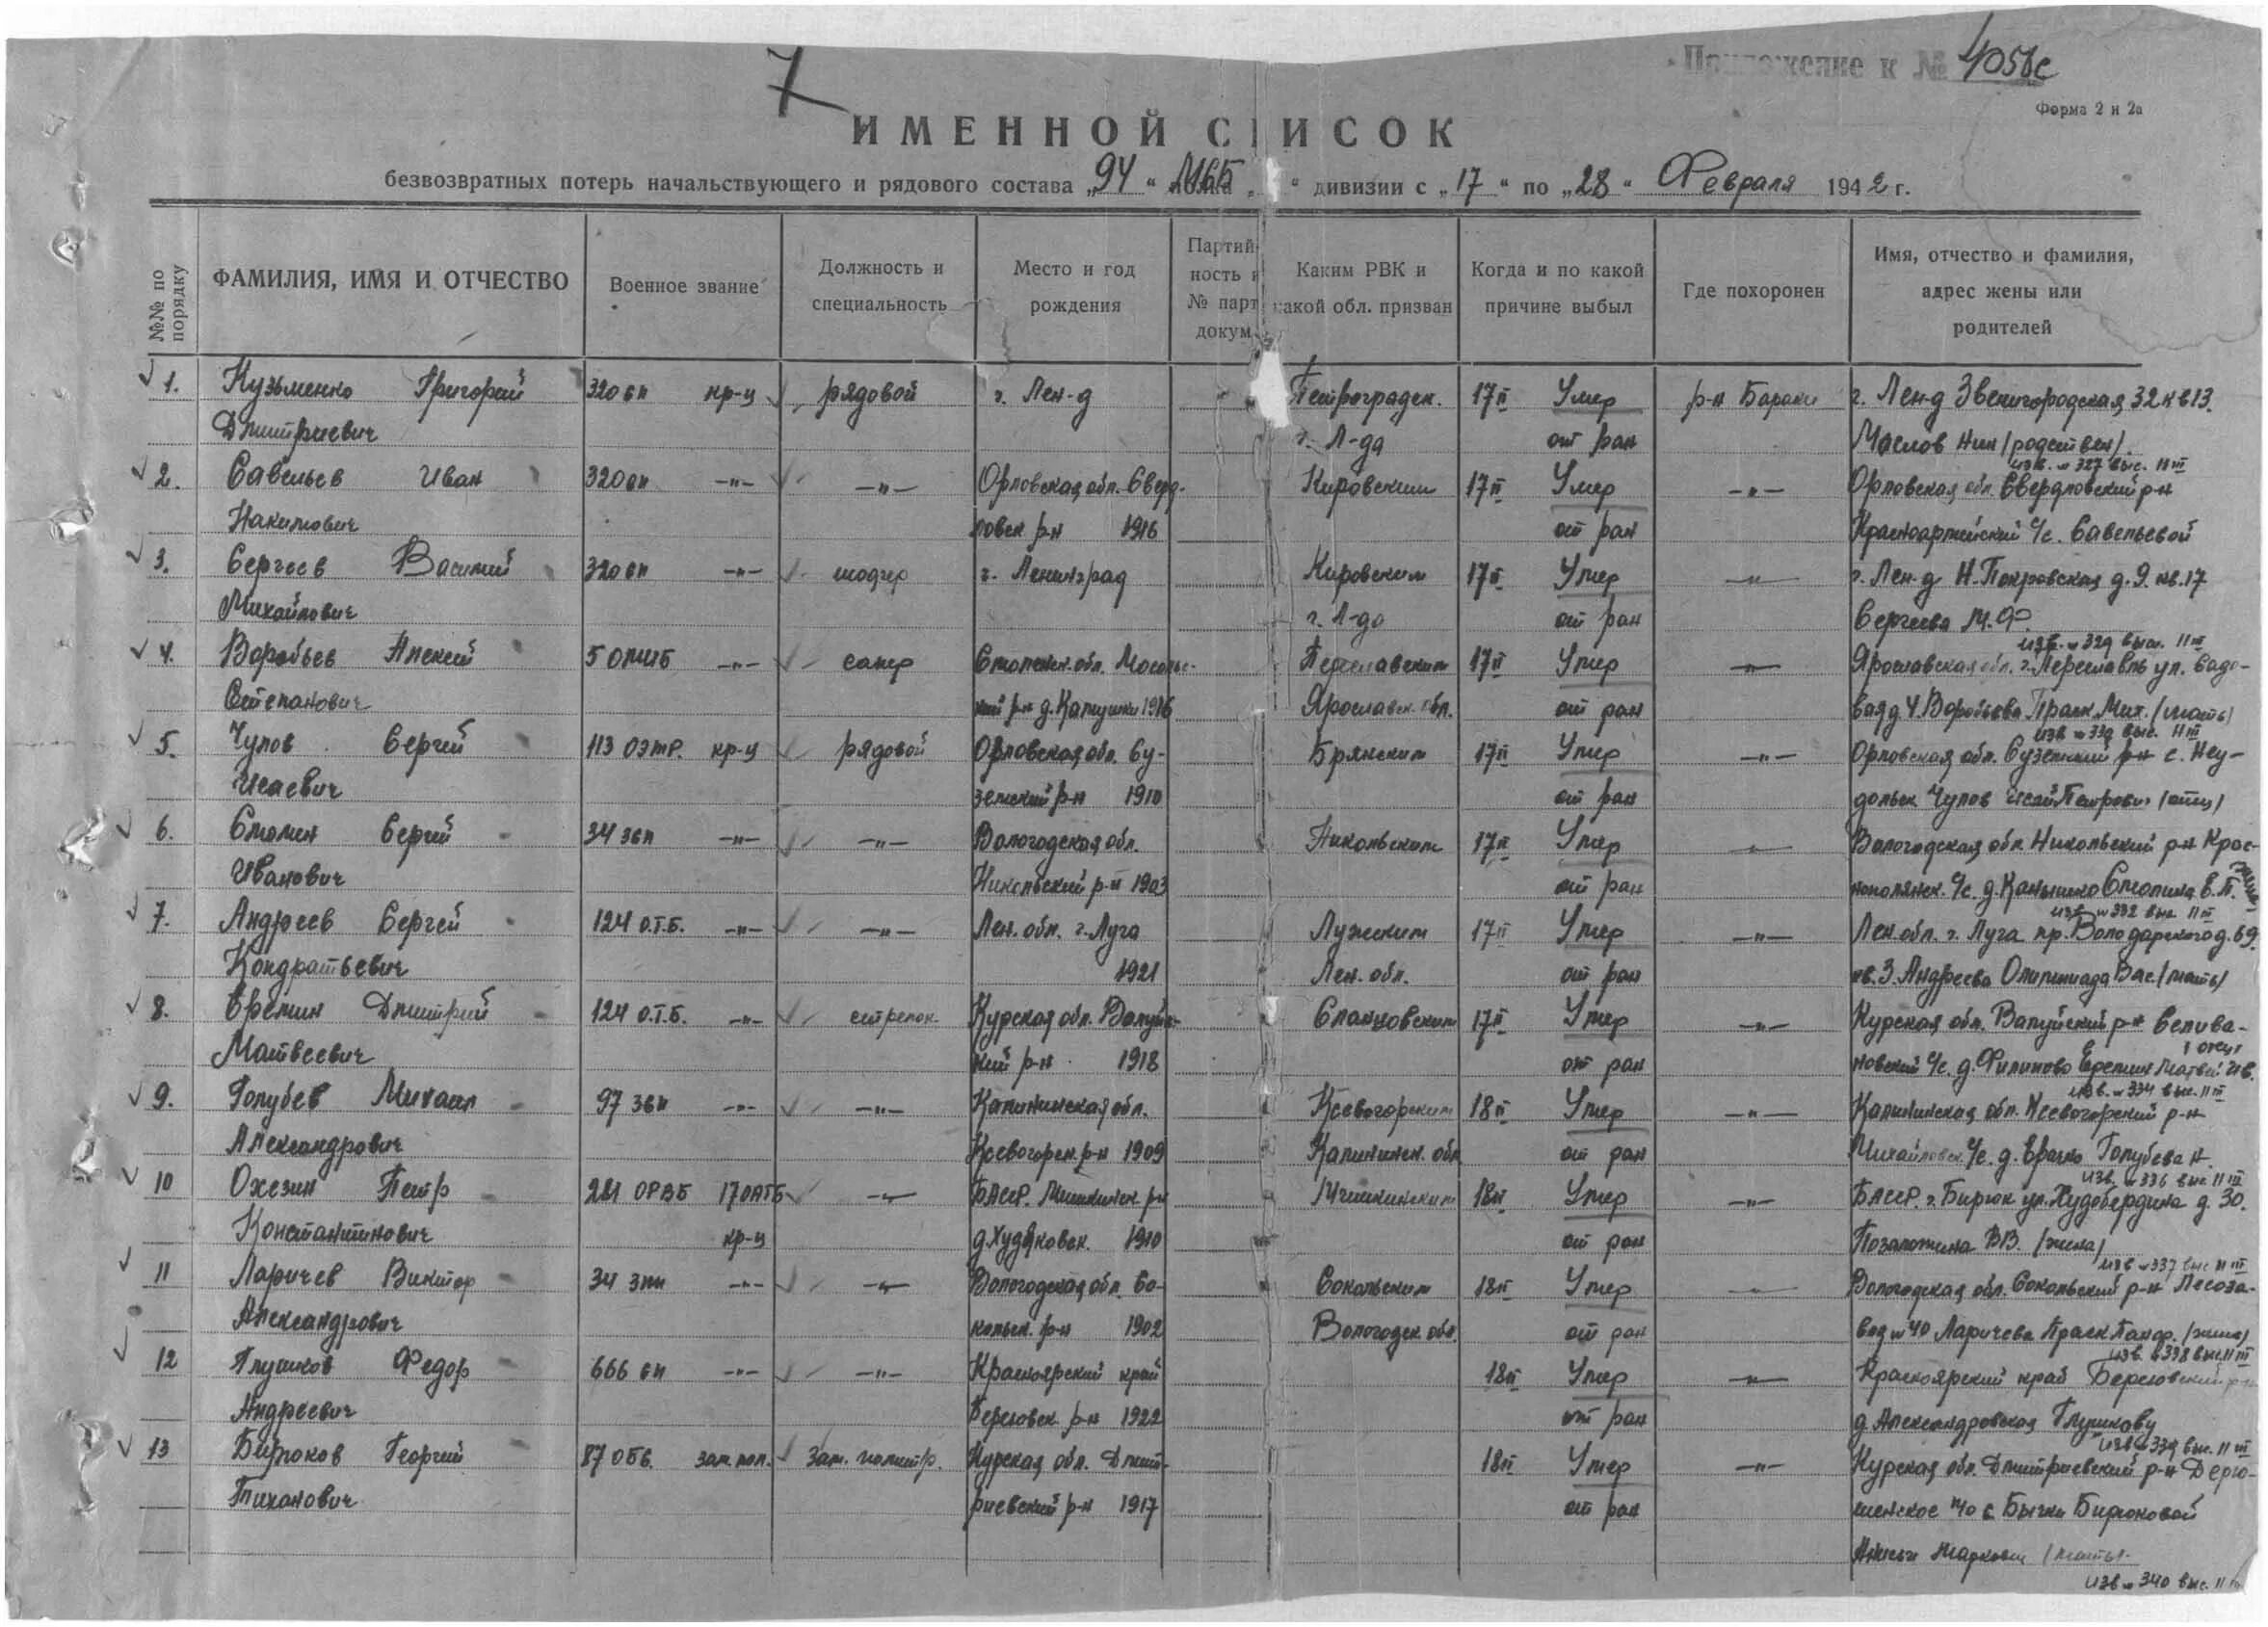 Приложение к № 4056с
7
Форма 2 и 2а
ИМЕННОЙ СПИСОК
безвозвратных потерь начальствующего и рядового состава „94“ МСБ „ “ дивизии с „17“ по „28“ Февраля 1942 г.
№№ по порядку
ФАМИЛИЯ, ИМЯ И ОТЧЕСТВО
Военное звание
Должность и
специальность
Место и год
рождения
Партий-
ность и
№ парт
докум.
Каким РВК и
какой обл. призван
Когда и по какой
причине выбыл
Где похоронен
Имя, отчество и фамилия,
адрес жены или
родителей
1. Кузьменко Григорий 320 сп кр-ц рядовой г. Лен-д Петроградск. 17 II Умер р-н Бараки г. Лен-д Звенигородская 32 кв 13.
Дмитриевич г. Л-да от ран Маслов (родствен)
изв. № 327 выс. 11 III
2. Савельев Иван 320 сп —"— —"— Орловская обл. Сверд- Кировским 17 II Умер —"— Орловская обл. Свердловский р-н
ловск р-н 1916 от ран Красноармейский с/с. Савельевой
3. Сергеев Василий 320 сп —"— г. Ленинград Кировским 17 II Умер —"— г. Лен-д Н. Покровская д. 9. кв. 17
Михайлович г. Л-да от ран Сергеева М. Ф
изв. № 329 выс. 11 III
4. Воробьев Алексей 5 ОМШБ —"— сапер Смоленск. обл. Мосаль- Переславским 17 II Умер —"— Ярославская обл. г. Переславль ул. Садо-
Степанович р-н д. 1916 Ярославск. обл. от ран вая д. 4 Воробьева Праск. Мих. (мать)
изв № 330 выс. 11 III
5. Чулов Сергей 113 ОЭТР. кр-ц рядовой Орловская обл. Су- Брянским 17 II Умер —"— Орловская обл. Суземский р-н с. Неу-
Исаевич земский р-н 1910 от ран дольск Чулов Исай Петрович (отец)
6. Смолин Сергей 34 зсп —"— —"— Вологодская обл. Никольским 17 II Умер —"— Вологодская обл. Никольский р-н Крас-
Иванович Никольский р-н 1903 от ран нополянск. с/с. д. Смолина Е. П.
изв № 332 выс. 11 III
7. Андреев Сергей 124 О.Т.Б. —"— —"— Лен. обл. г. Луга Лужским 17 II Умер —"— Лен. обл. г. Луга пр. Володарского д. 69.
Кондратьевич 1921 Лен. обл. от ран кв. 3. Андреева Олимпиада Вас. (мать)
8. Еремин Дмитрий 124 О.Т.Б. —"— стрелок Курская обл. Валуйс- Сланцовским 17 II Умер —"— Курская обл. Валуйский р-н Селива-
Матвеевич кий р-н 1918 от ран новский с/с. д. Филипово Еремин Матвей Ив. (отец)
изв. № 334 выс. 11 III
9. Голубев Михаил 97 зсп —"— —"— Калининская обл. Ксевогорским 18 II Умер —"— Калининская обл. Ксевогорский р-н
Александрович Ксевогорск. р-н 1909 Калининск. обл от ран Михайловск. с/с. д. Голубева Н.
изв. № 336 выс 11 III
10 Охезин Петр 281 ОРВБ 17 ОАТБ —"— БАССР. Мишкинск. р-н Мишкинским 18 II Умер —"— БАССР. г. Бирск ул. Худобердина д. 30.
Константинович кр-ц д. Худяковск. 1910 от ран (жена)
изв № 337 выс 11 III
11 Ларичев Виктор 34 зпп —"— —"— Вологодская обл. Со- Сокольским 18 II Умер —"— Вологодская обл. Сокольский р-н Лесоза-
Александрович кольск. р-н 1902 Вологодск. обл. от ран вод № 40 Ларичева Праск. (жена)
изв. № 338 выс. 11 III
12 Глушков Федор 666 сп —"— —"— Красноярский край 18 II Умер —"— Красноярский край Березовский р-н
Андреевич Березовск. р-н 1922 от ран д. Александровская Глушкову
изв № 339 выс. 11 III
13 Бирюков Георгий 87 ОБВ. зам. пол. Зам. политр. Курская обл. Дмит- 18 II Умер —"— Курская обл. Дмитриевский р-н Дерю-
Тихонович риевский р-н 1917 от ран с. Бычки Бирюковой
(мать)
изв № 340 выс. 11 III